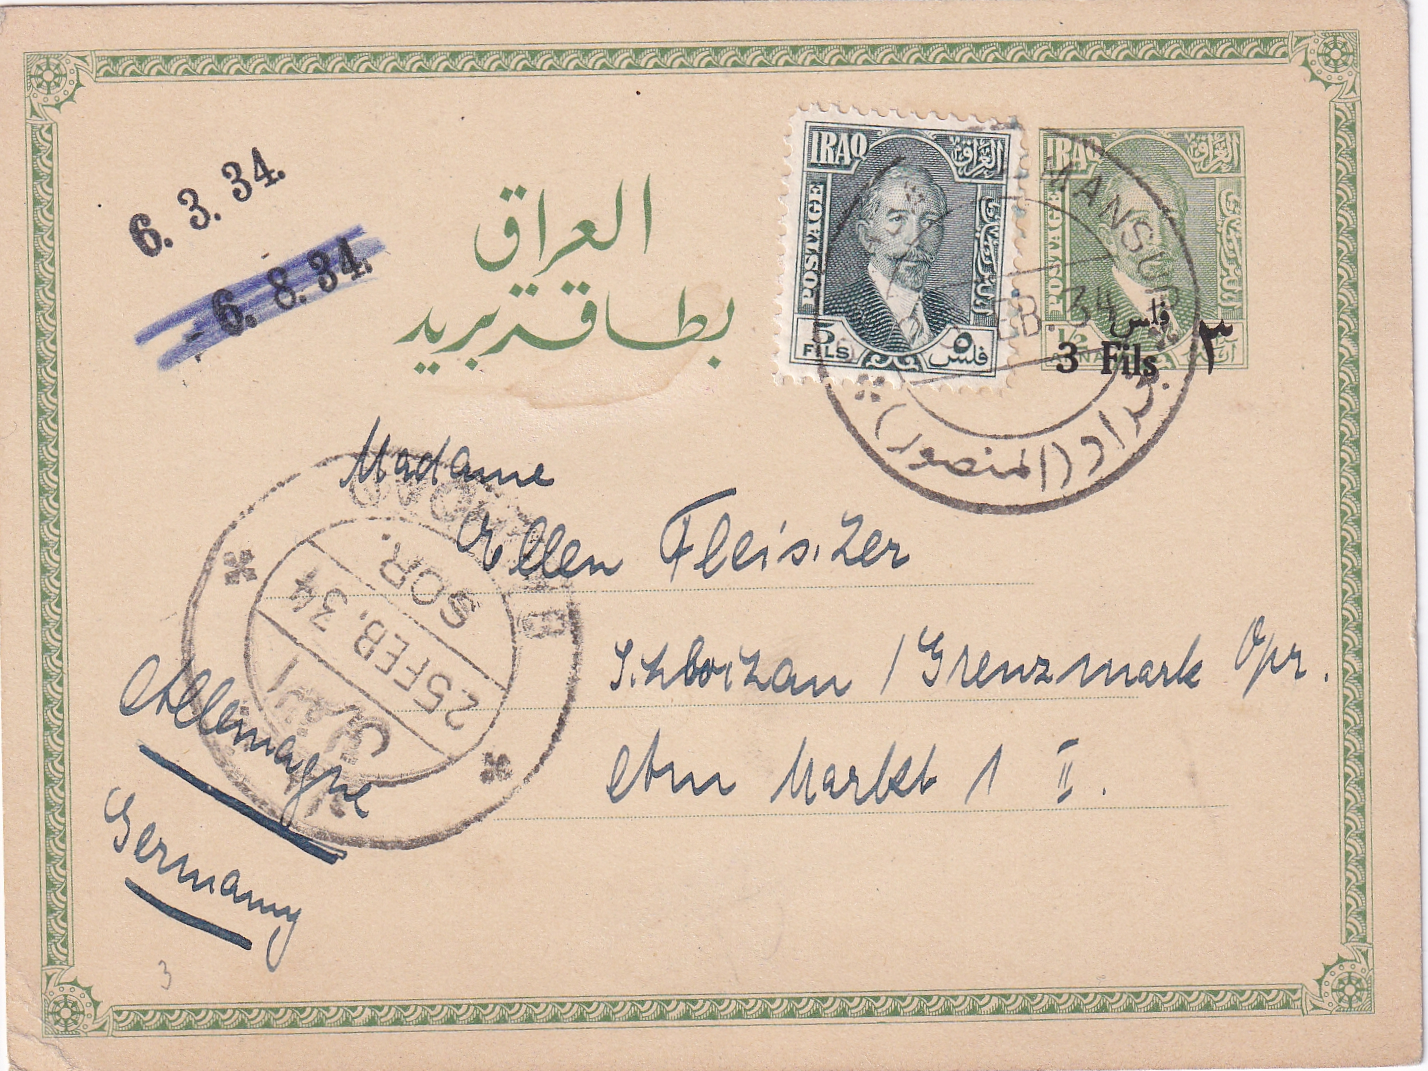 6. 3. 34.
6. 8. 34.
العراق
بطاقة بريد
IRAQ
العراق
POSTAGE
5
٥
FILS
فلس
IRAQ
العراق
POSTAGE
1/2
ANNA
3 Fils
فلس ٣
MANSUR
FEB. 34
بغداد (المنصور)
BAGHDAD
SOR.
25 FEB. 34
Madame
Ellen Fleiszer
Schloizan / Grenzmark Opr.
Am Markt 1 II.
Allemagne
Germany
3